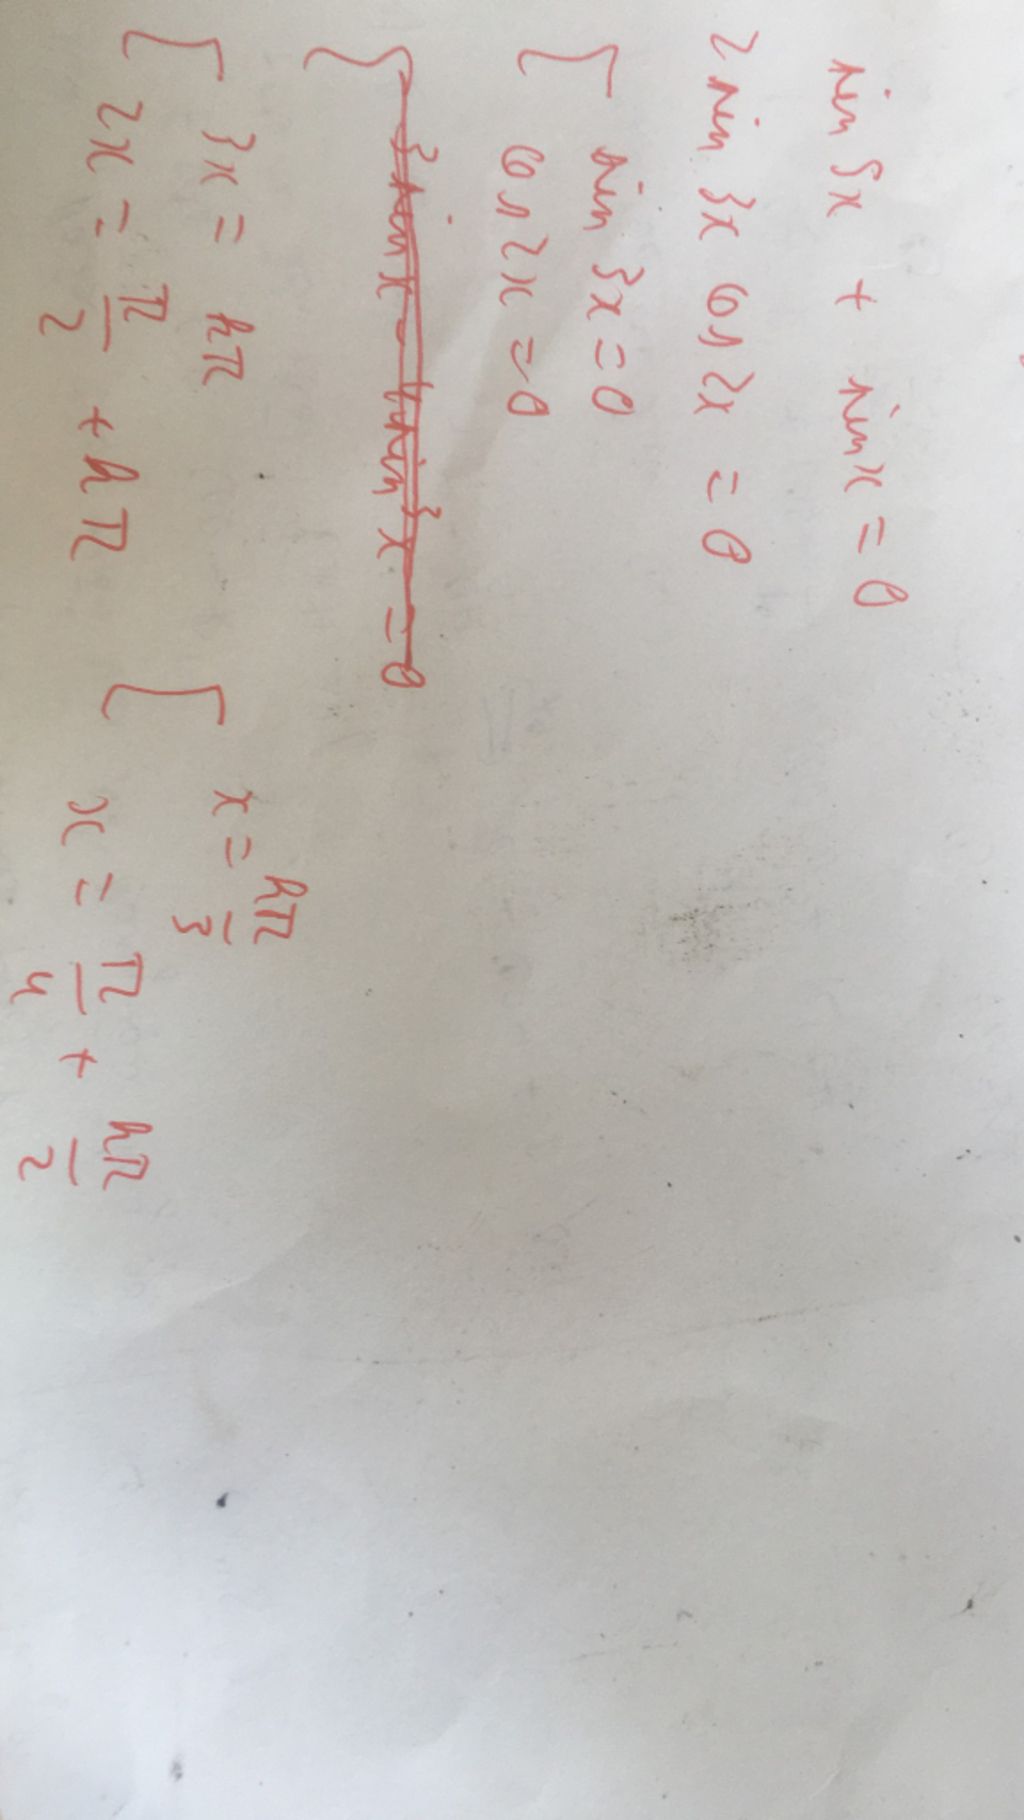 sin 5x + sin x = 0
2 sin 3x cos 2x = 0
[ sin 3x = 0
cos 2x = 0
3 sin x - 4 sin³ x = 0
[ 3x = kπ
2x = π/2 + kπ
[ x = kπ/3
x = π/4 + kπ/2